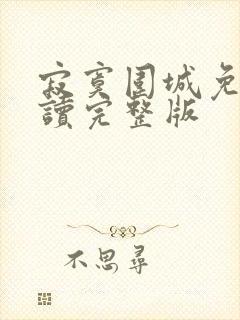 寂寞围城免
讀完整版
不思尋